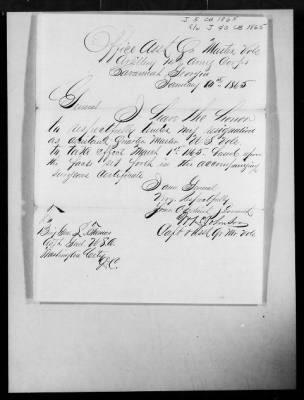 J 5 CB 1865
J 90 CB 1865
Office Asst Qr Master Vols
Artillery Army Corps
Savannah Georgia
January 10th 1865
General
I have the honor
to respectfully tender my resignation
as Assistant Quarter Master U S Vols
to take effect March 1st 1865. based upon
the facts set forth in the accompanying
Surgeons Certificate
I am General
Very Respectfully
Your Obedient Servant
Johnson
Capt & Asst Qr Mr Vols
To
Brig Gen L Thomas
Adjt Genl U.S.A.
Washington City
D.C.